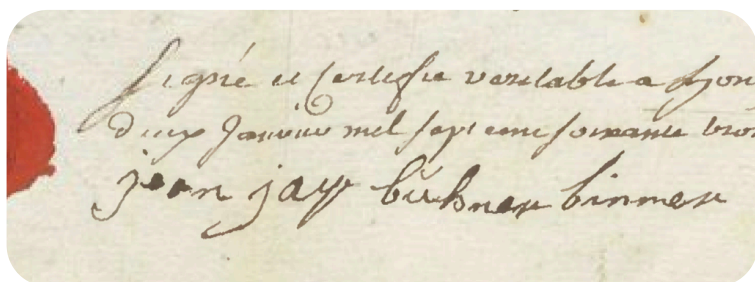 Signé et Certifié veritable a Lyon
deux Janvier mil sept cens soixante trois
jean jay bühner binner